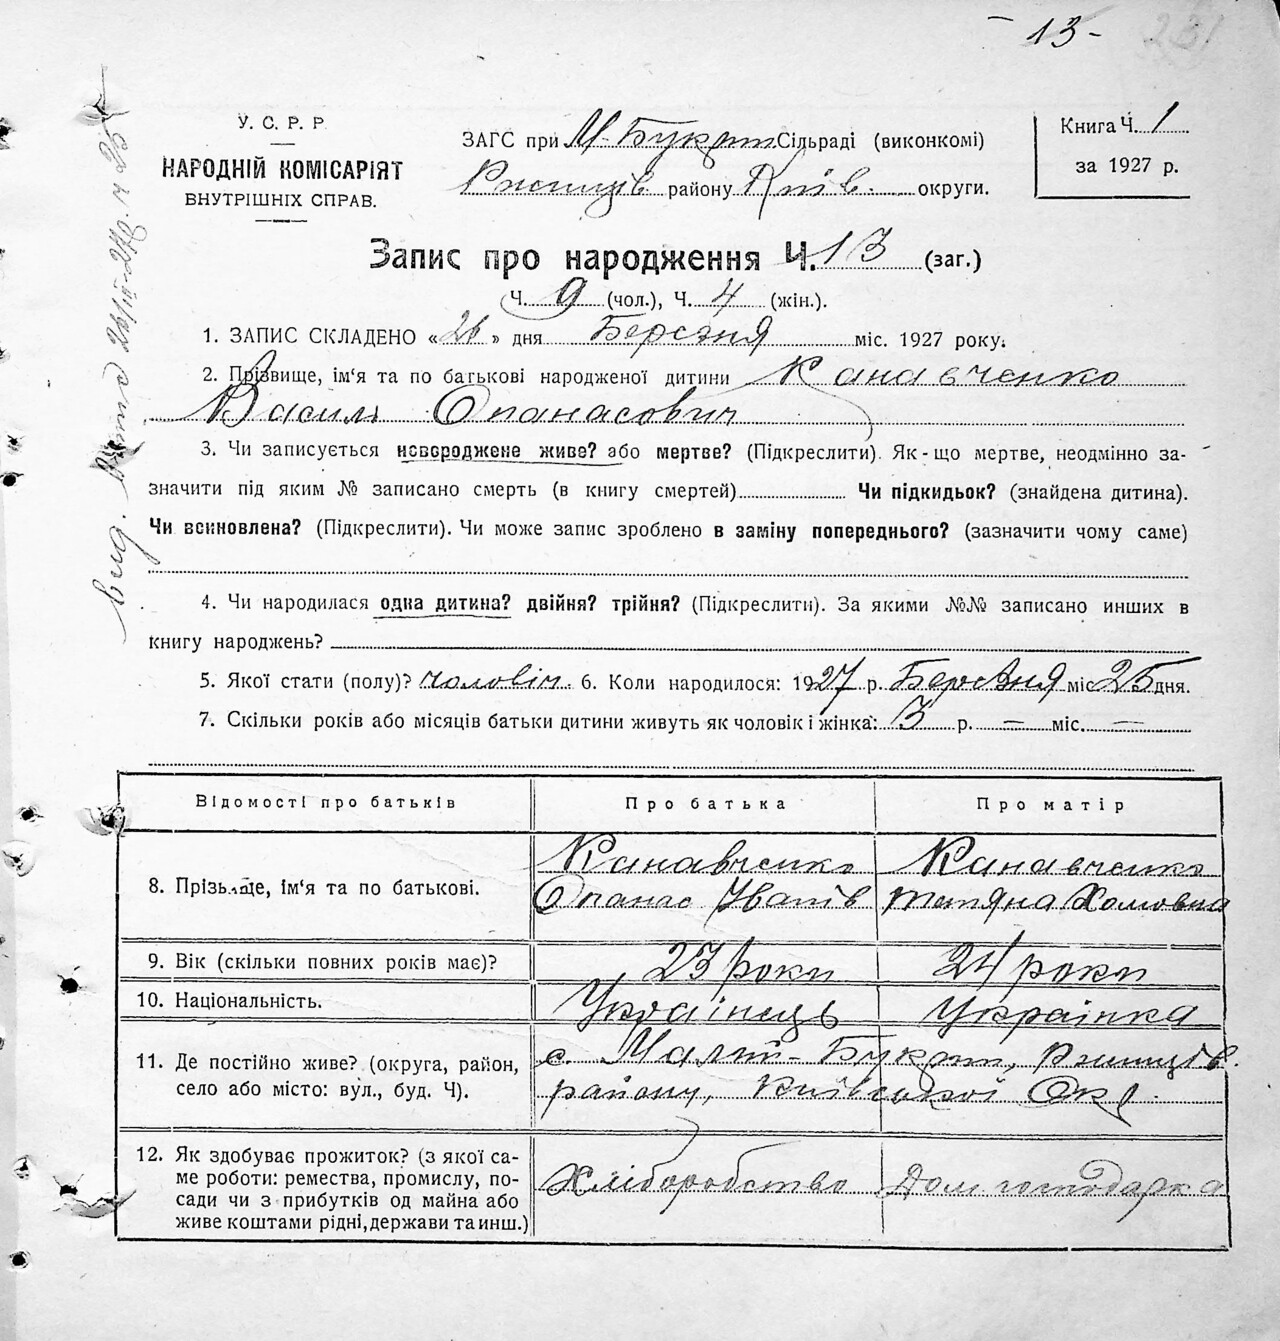 - 13 -
У. С. Р. Р.
НАРОДНІЙ КОМІСАРІЯТ
ВНУТРІШНІХ СПРАВ.
ЗАГС при М-Букрин Сільраді (виконкомі)
Ржищів. району Київ. округи.
Книга Ч. 1
за 1927 р.
Запис про народження Ч. 13 (заг.)
Ч. 9 (чол.), Ч. 4 (жін.).
1. ЗАПИС СКЛАДЕНО « 26 » дня Березня міс. 1927 року.
2. Прізвище, ім‘я та по батькові народженої дитини Канавченко
Василь Опанасович
3. Чи записується новороджене живе? або мертве? (Підкреслити). Як-що мертве, неодмінно за-
значити під яким № записано смерть (в книгу смертей) Чи підкидьок? (знайдена дитина).
Чи всиновлена? (Підкреслити). Чи може запис зроблено в заміну попереднього? (зазначити чому саме)
4. Чи народилася одна дитина? двійня? трійня? (Підкреслити). За якими №№ записано инших в
книгу народжень?
5. Якої стати (полу)? чоловіч. 6. Коли народилося: 1927 р. Березня міс. 25 дня.
7. Скільки років або місяців батьки дитини живуть як чоловік і жінка: 3 р. — міс. —
Відомості про батьків Про батька Про матір
8. Прізвище, ім‘я та по батькові.
Канавченко Канавченко
Опанас Иванів Тетяна Хомовна
9. Вік (скільки повних років має)? 23 роки 24 роки
10. Національність. Українець Українка
11. Де постійно живе? (округа, район,
село або місто: вул., буд. Ч).
с. Малий-Букрин, Ржищів.
району, Київської Окр.
12. Як здобуває прожиток? (з якої са-
ме роботи: ремества, промислу, по-
сади чи з прибутків од майна або
живе коштами рідні, держави та инш.)
Хліборобство Дом господарка